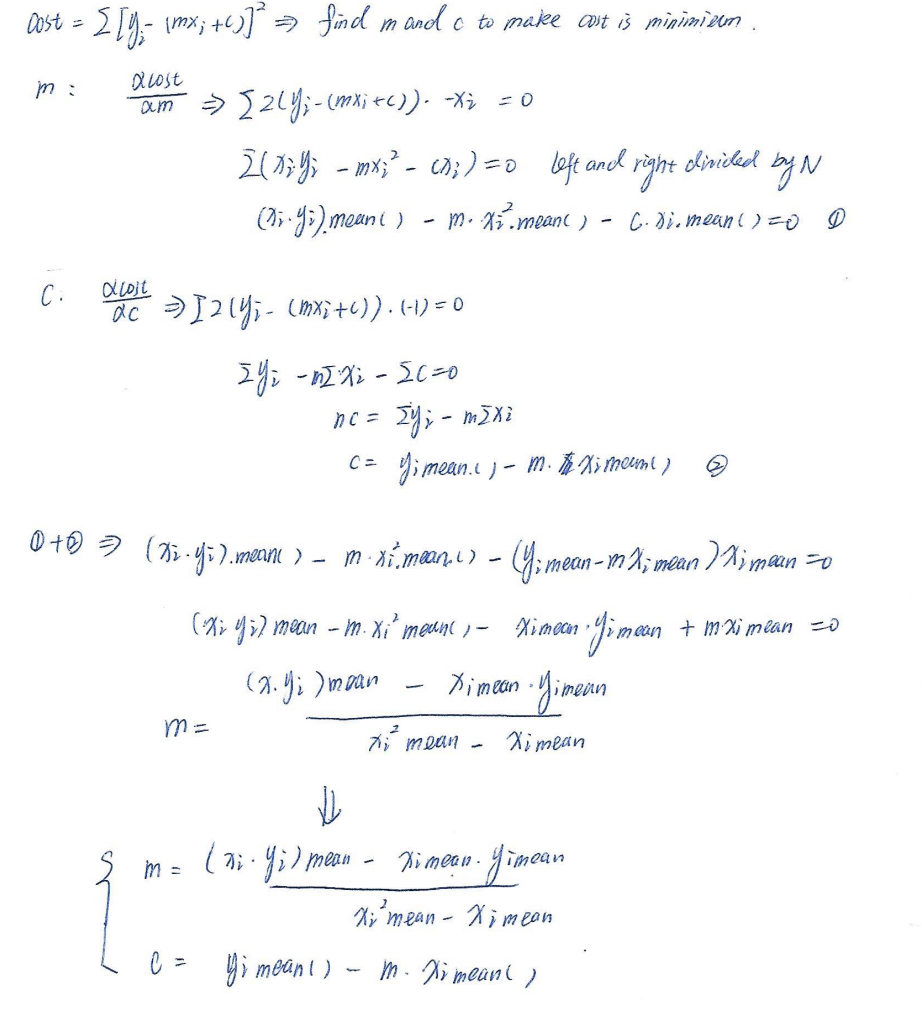 Cost = Σ[yi - (mxi+c)]² ⇒ find m and c to make cost is minimium.
m : αcost/αm ⇒ Σ2(yi-(mxi+c)). -xi = 0
Σ(xiyi - mxi² - cxi) = 0 left and right divided by N
(xi·yi).mean() - m·xi².mean() - C·xi.mean() = 0 ①
C. αcost/αc ⇒ Σ2(yi-(mxi+c)).(-1) = 0
Σyi - mΣxi - Σc = 0
nc = Σyi - mΣxi
c = yimean.() - m. ximean() ②
①+② ⇒ (xi·yi).mean() - m·xi².mean.() - (yimean-mximean)ximean = 0
(xi yi)mean - m.xi²mean() - ximean·yimean + mximean = 0
m = (x.yi)mean - ximean·yimean / xi²mean - ximean
⇓
{ m = (xi·yi)mean - ximean.yimean / xi²mean - ximean
c = yimean() - m. ximean()